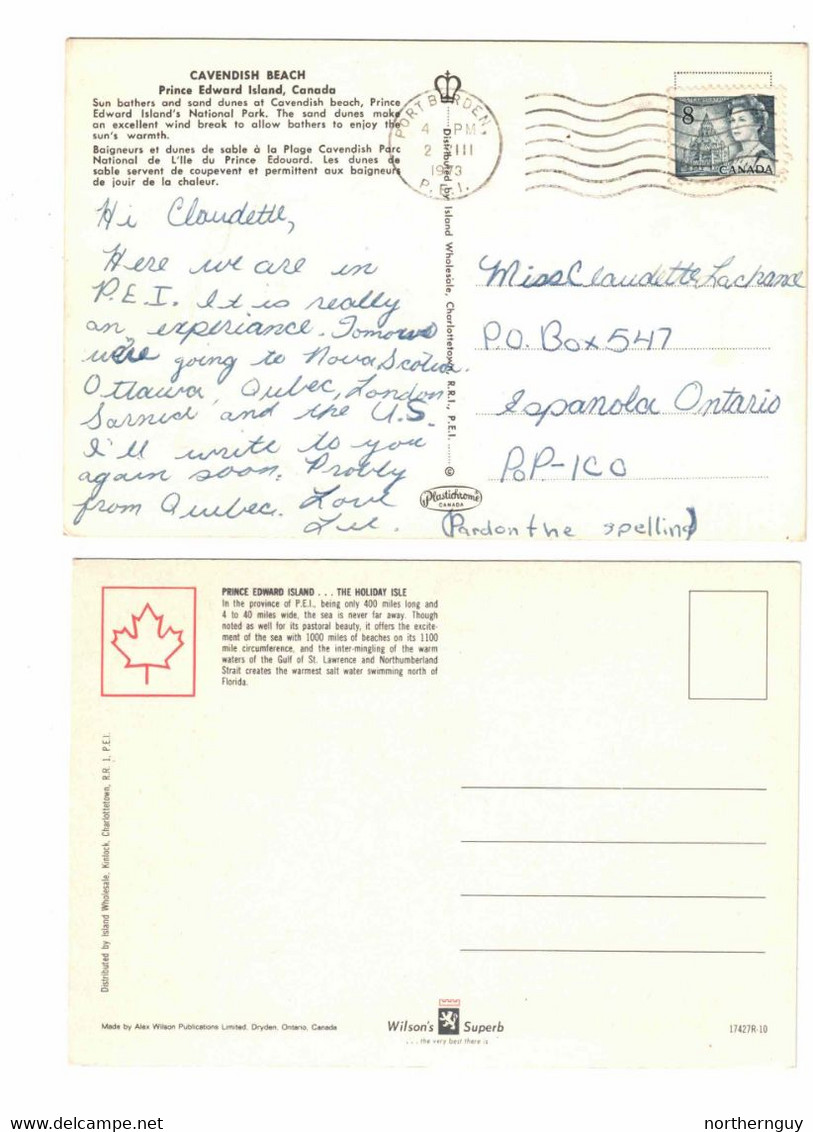 CAVENDISH BEACH
Prince Edward Island, Canada
Sun bathers and sand dunes at Cavendish beach, Prince
Edward Island's National Park. The sand dunes make
an excellent wind break to allow bathers to enjoy the
sun's warmth.
Baigneurs et dunes de sable à la Plage Cavendish Parc
National de L'Ile du Prince Edouard. Les dunes de
sable servent de coupevent et permittent aux baigneurs
de jouir de la chaleur.
PORT BORDEN,
4 PM
2 III
1973
P.E.I.
8
CANADA
Distributed by Island Wholesale, Charlottetown, R.R.1., P.E.I.
©
Plastichrome
CANADA
Hi Claudette,
Here we are in
P.E.I. It is really
an experiance. Tomorow
we're going to Nova Scotia.
Ottawa, Qubec, London
Sarnia and the U.S.
I'll write to you
again soon. Probly
from Quebec. Love
Miss Claudette Lachance
P.O. Box 547
Espanola Ontario
PoP-1C0
(Pardon the spelling)
PRINCE EDWARD ISLAND . . . THE HOLIDAY ISLE
In the province of P.E.I., being only 400 miles long and
4 to 40 miles wide, the sea is never far away. Though
noted as well for its pastoral beauty, it offers the excite-
ment of the sea with 1000 miles of beaches on its 1100
mile circumference, and the inter-mingling of the warm
waters of the Gulf of St. Lawrence and Northumberland
Strait creates the warmest salt water swimming north of
Florida.
Distributed by Island Wholesale, Kinlock, Charlottetown, R.R. 1, P.E.I.
Made by Alex Wilson Publications Limited, Dryden, Ontario, Canada
Wilson's Superb
. . . the very best there is
17427R-10
northernguy